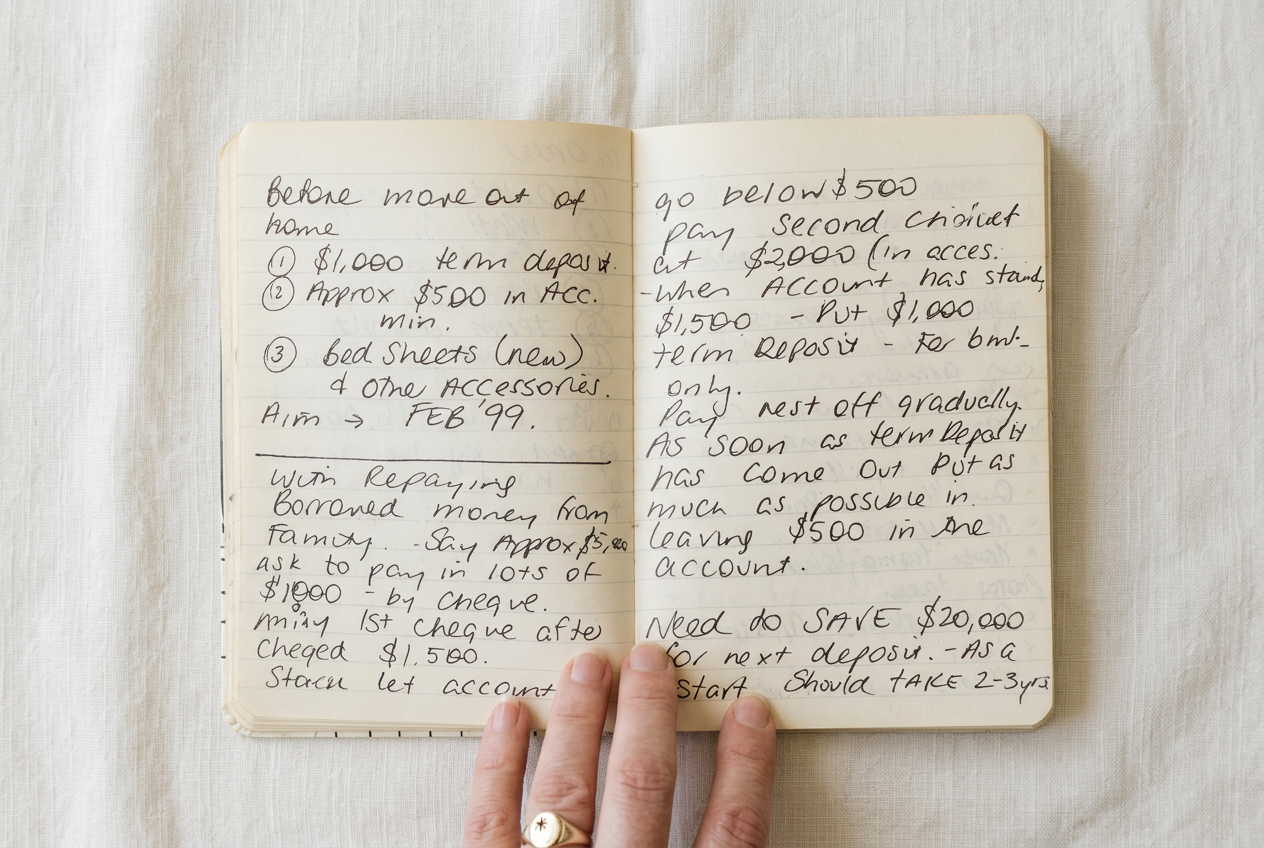 Before move out of
home
① $1,000 term deposit.
② Approx $500 in Acc.
min.
③ bed sheets (new)
& other Accessories.
Aim → FEB '99.
With Repaying
Borrowed money from
Family. - Say Approx $5,000
ask to pay in lots of
$1000 - by cheque.
1st cheque after
$1,500.
let account
go below $500
pay second
at $2,000 (in acces.
- when Account has
$1,500 - Put $1,000
term Deposit - For
only.
Pay rest off gradually.
As soon as term Deposit
has come out put as
much as possible in.
leaving $500 in the
account.
Need to SAVE $20,000
for next deposit. - As a
start should take 2-3yrs